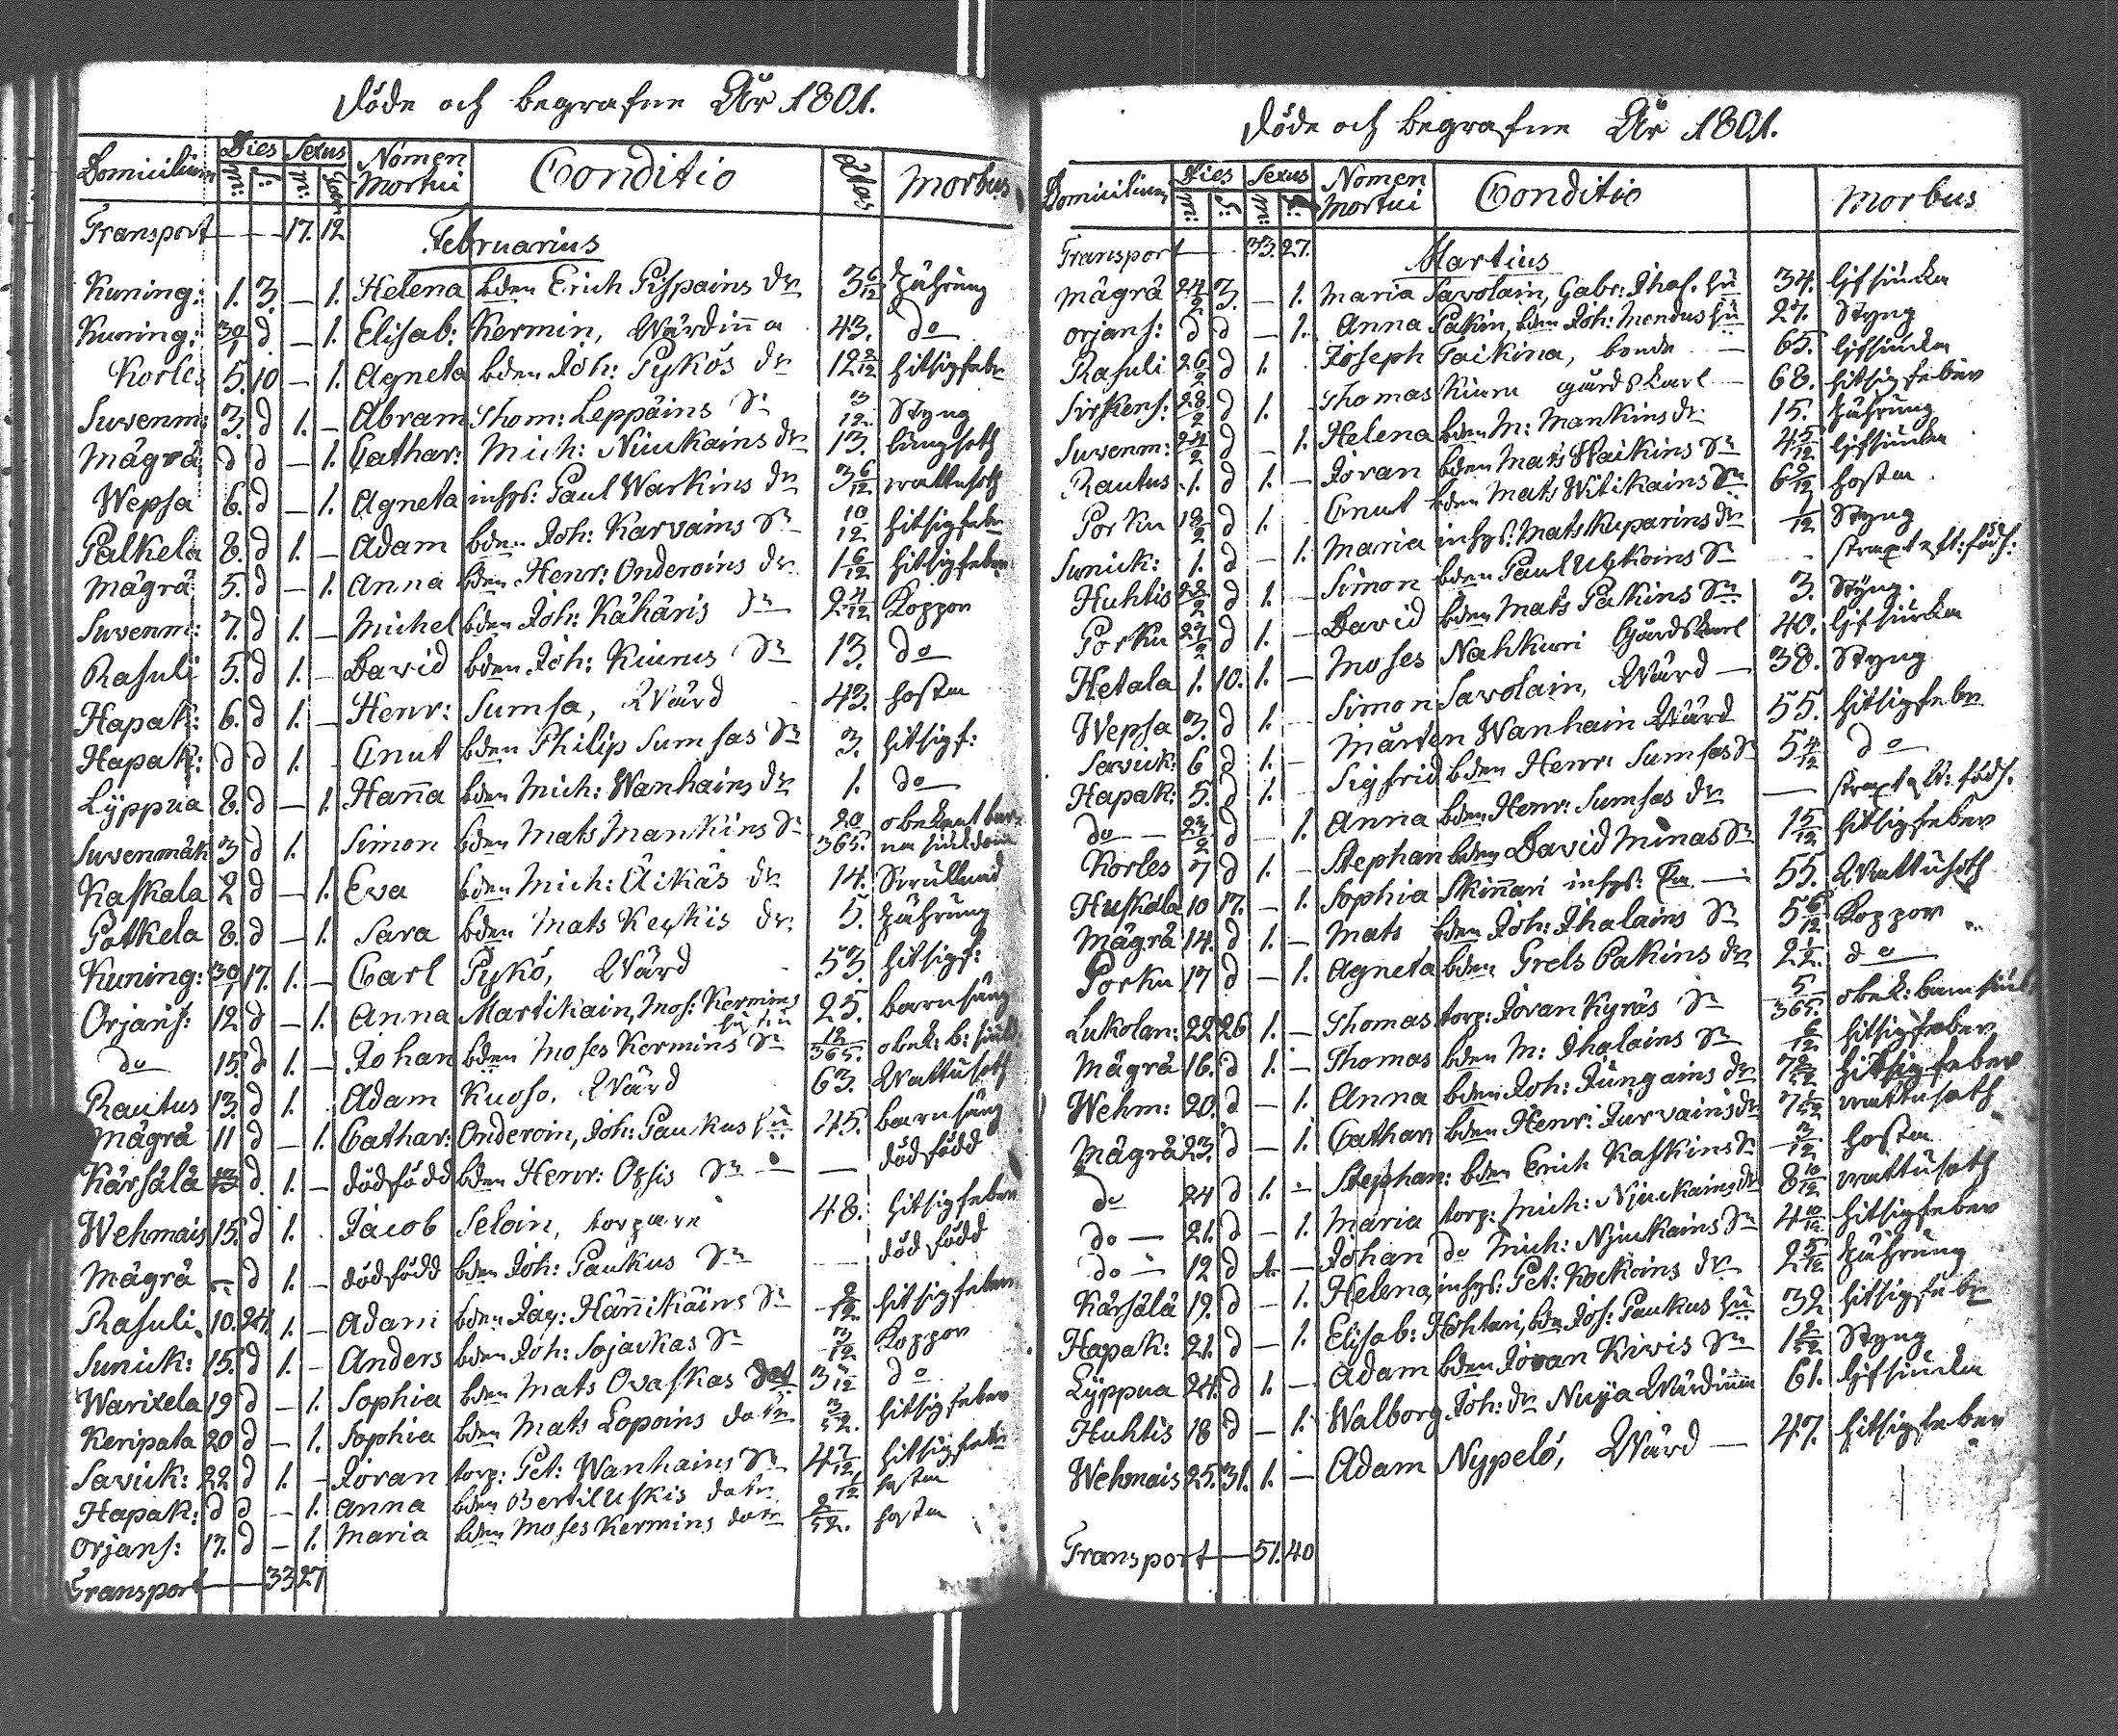 Döde och begrafne År 1801.
Domicilium Dies Sexus Nomen Mortui Conditio Ætas Morbus
m: s: m: Qv:
Transport — — 17. 12
Februarius
Kuning: 1. 3. — 1. Helena bden Erich Pispains dr 3 6/12 Tährung
Kuning: 30/1 d — 1. Elisab: Kermin, Wärdinna 43. do
Korles 5. 10 — 1. Agneta bden Joh: Pykös dr 12 2/12 hitsigfebr
Suvenm: 3. d 1. — Abram Thom: Leppäins Sn 3/12 Styng
Mägrä d d — 1. Cathar: Mich: Niukains dr 13. lungsoth
Wepsa 6. d — 1. Agneta inhys: Paul Warkins dr 3 6/12 wattusoth
Palkela 8. d 1. — Adam bden Joh: Karvains Sn 10/12 hitsigfebr
Mägrä 5. d — 1. Anna bden Henr: Onderoins dr 1 6/12 hitsigfeber
Suvenm: 7. d 1. — Michel bden Joh: Kähäris Sn 2 4/12 Koppor
Rasuli 5. d 1. — David bden Joh: Kiurus Sn 13. do
Hapak: 6. d 1. — Henr: Sumsa, Wärd 43. hosta
Hapak: d d 1. — Cnut bden Philip Sumsas Sn 3. hitsigf:
Lyppua 8. d — 1. Hanna bden Mich: Wanhains dr 1. do
Suvenmäk 3 d 1. Simon bden Mats Mankins Sn 20/365. obekant bar-
na siukdom
Kaskala 2 d — 1. Eva bden Mich: Äikäs dr 14. Svullnad
Potkela 8. d — 1. Sara bden Mats Keskis dr. 5. Tährung
Kuning: 30/1 17. 1. — Carl Pykö, Wärd 53. hitsigf:
Orjans: 12 d — 1. Anna Martikain, Mos: Kermins
hustru 25. barnsäng
do 15. d 1. — Johan bden Moses Kermins Sn 12/365. obek: b: siuk
Rautus 13. d 1. Adam Kuoso, Wärd 63. Wattusoth
Mägrä 11 d — 1. Cathar: Onderoin, Joh: Paukus hu 45. barnsäng
Kärsälä 13 d. 1. — dödfödd bden Henr: Opsis Sn — — dödfödd
Wehmais 15. d 1. Jacob Seloin, torpare 48. hitsigfeber
Mägrä — d 1. — dödfödd bden Joh: Paukus Sn — död född
Rasuli 10. 24. 1. — Adam bden Jac: Hännikäins Sn 2/12. hitsigfeber
Sunick: 15. d 1. — Anders bden Joh: Sojavkas Sn 3/12 Koppor
Warixela 19 d — 1. Sophia bden Mats Ovaskas dot 3 3/12 do
Keripata 20 d — 1. Sophia bden Mats Lopoins dotr 3/52. hitsigfeber
Savick: 22 d 1. — Jöran torp: Pet: Wanhains Sn 4 7/12 hitsigfebr
Hapak: d d — 1. Anna bden Bertil Uskis dotr 1/12 hosta
Orjans: 17. d — 1. Maria bden Moses Kermins dotr 2/52. hosta
Transport — — 33 27
Döde och begrafne År 1801.
Domicilium Dies Sexus Nomen Mortui Conditio Morbus
m: s: m: Q:
Transport — 33. 27.
Martius
Mägrä 24/2 3. — 1. Maria Savolain, Gabr: Ihal: hu 34. lifsiuka
Orjans: d d — 1. Anna Pakin, bden Joh: Mondus hu 27. Styng
Rasuli 26/2 d 1. Joseph Taikina, bonde — 65. lifsiuka
Sirkens: 28./2 d 1. Thomas Kiuru gårdskarl — 68. hitsigfeber
Suvenm: 24/2 d — 1. Helena bden M: Mankins dr. 15. Tährung
Rautus 1. d 1. — Jöran bden Mats Haikins Sn 4 5/12 lifsiuka
Porku 18/2 d 1. Cnut bden Mats Witikains Sn 6 9/12 hosta
Sunick: 1. d — 1. Maria inhys: Mats Kuparins dr 1/12 Styng
Huhtis 22/2 d 1. — Simon bden Paul Uskoins Sn — straxt eft: föds:
Porku 27/2 d 1. — David bden Mats Pakins Sn 3. Styng.
Hetala 1. 10. 1. — Moses Nahkuri Gårdskarl 40. lifsiuka
Wepsa 3. d 1. — Simon Savolain, Wärd — 38. Styng
Savick: 6 d 1. — Mårten Wanhain Wärd 55. hitsigfebr
Hapak: 5. d 1. Sigfrid bden Henr: Sumsas Sn 5 4/12 do
do — 23/2 d — 1. Anna bden Henr: Sumsas dr — straxt eft: föds.
Korles 7 d 1. — Stephan bden David Minas Sn 1 5/12 hitsigfeber
Huskala 10 17. — 1. Sophia Skinnari inhys: — 55. Wattusoth
Mägrä 14. d 1. — Mats bden Joh: Ihalains Sn 5 6/12 Koppor
Porku 17 d — 1. Agneta bden Grels Pakins dr 2 1/2. do
Lukolan: 22 26 1. — Thomas torp: Jöran Kyräs Sn 5/365. obek: barnsiuk:
Mägrä 16. d 1. — Thomas bden M: Ihalains Sn 6/12 hitsigfeber
Wehm: 20. d — 1. Anna bden Joh: Jungains dr 7 2/52 hitsigfeber
Mägrä 23. d — 1. Cathar: bden Henr: Turvains dr 7 1/52 wattusoth
do 24 d 1. — Stephan: bden Erich Kaskins Sn 3/12 hosta
do — 21. d — 1. Maria torp: Mich: Njuckains dr 8 10/12 wattusoth
do — 12 d 1. — Johan do Mich: Njuckains Sn 4 10/12 hitsigfeber
Kärsälä 19. d — 1. Helena, inhys: Pet: Kockoins dr 2 5/12 Tährung
Hapak: 21. d — 1. Elisab: Hohtari, bden Jos: Paukus hu 32 hitsigfebr
Lyppua 24. d 1. — Adam bden Jöran Kivis Sn 1 2/52 Styng
Huhtis 18 d — 1. Walborg Joh: dr Nuija Wärdinna 61. lifsiuka
Wehmais 25. 31. 1. — Adam Nypelö, Wärd — 47. hitsigfeber
Transport — 51. 40